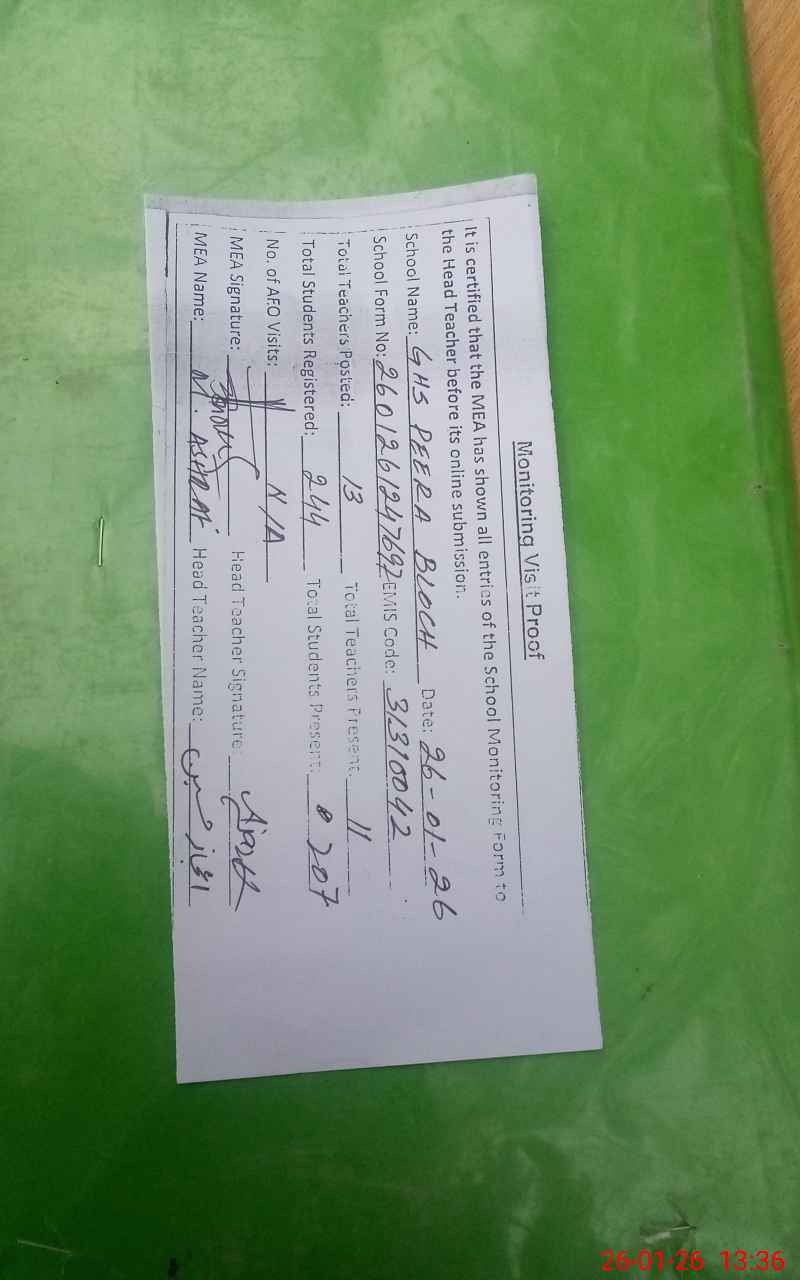 Monitoring Visit Proof
It is certified that the MEA has shown all entries of the School Monitoring Form to
the Head Teacher before its online submission.
School Name: GHS PEERA BLOCH Date: 26-01-26
School Form No: 2601261247697 EMIS Code: 31310042
Total Teachers Posted: 13 Total Teachers Present: 11
Total Students Registered: 244 Total Students Present: 207
No. of AEO Visits: N/A
MEA Signature: Head Teacher Signature:
MEA Name: M. ASHRAF Head Teacher Name:
26-01-26 13:36